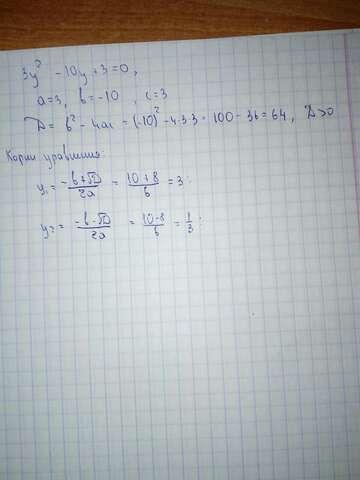 3y² - 10y + 3 = 0,
a = 3, b = -10, c = 3
D = b² - 4ac = (-10)² - 4·3·3 = 100 - 36 = 64, D > 0
Корни уравнения:
y₁ = (-b + √D)/2a = (10 + 8)/6 = 3;
y₂ = (-b - √D)/2a = (10 - 8)/6 = 1/3;